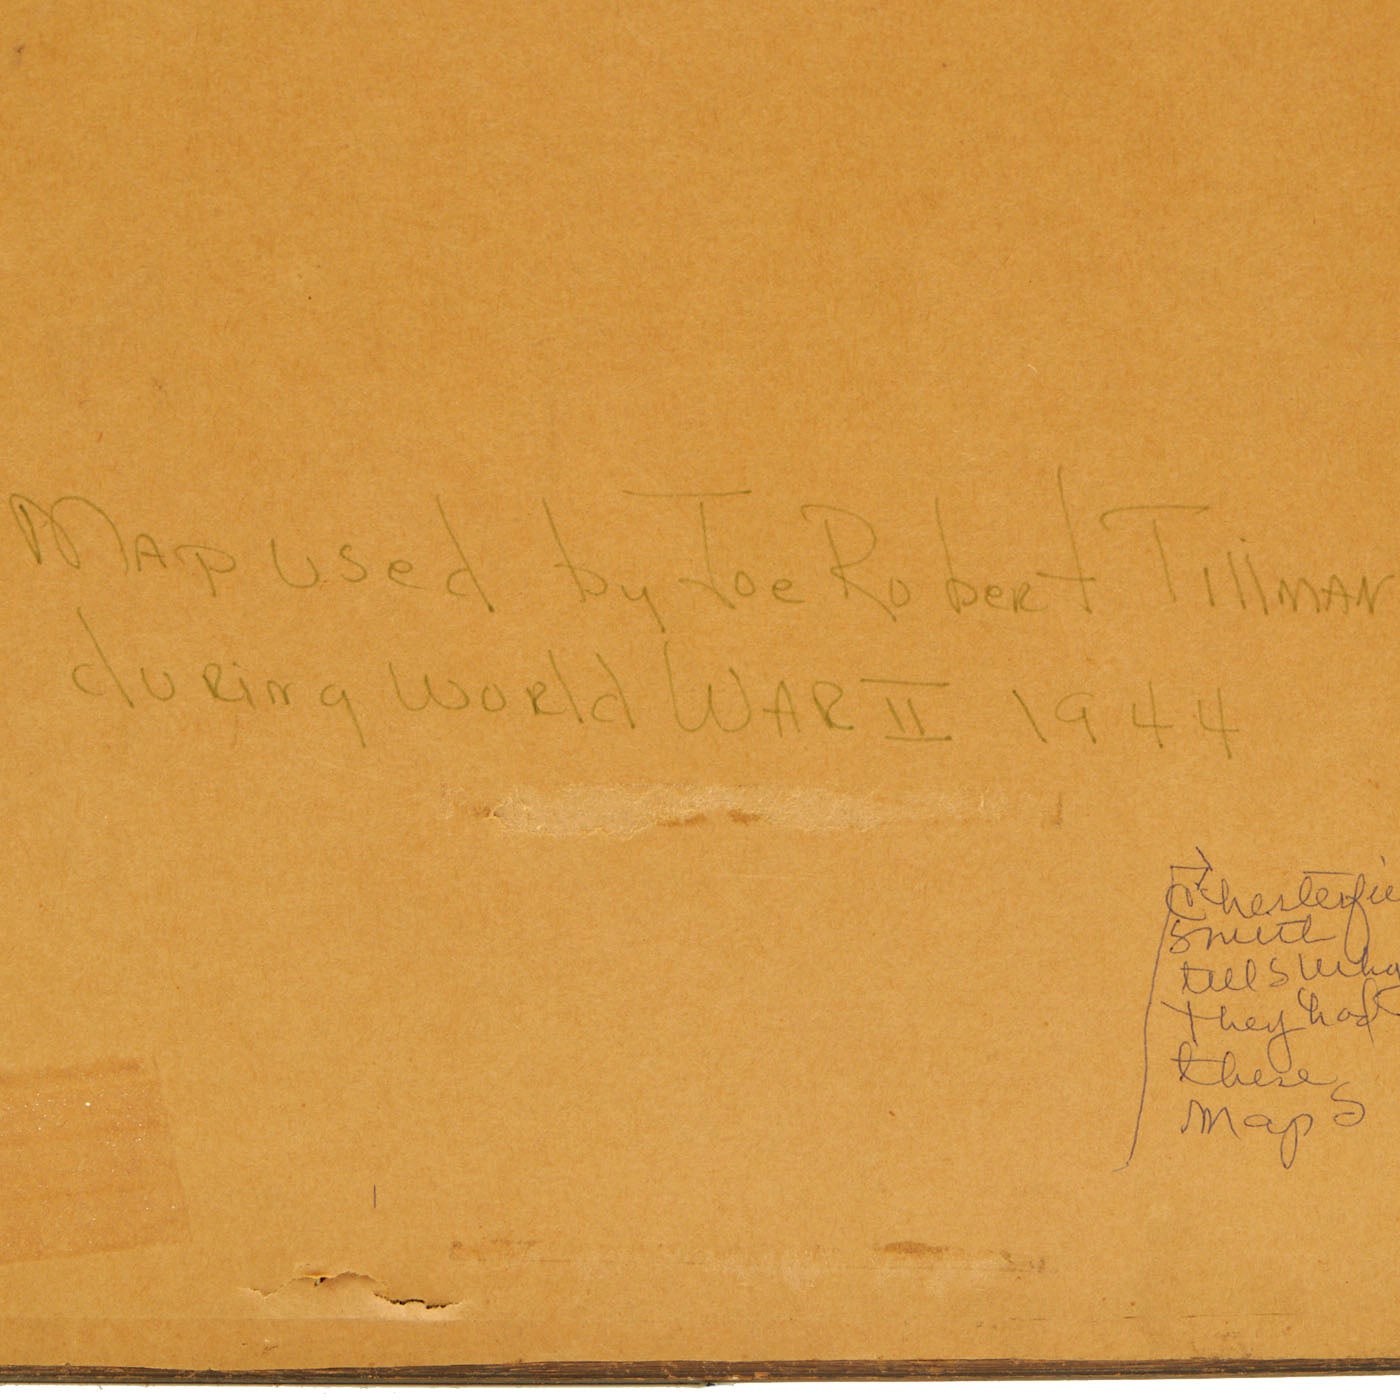 Map used by Joe Robert Tillman
during World War II 1944
Chesterfie
Smith
tells wha
they had
these
maps